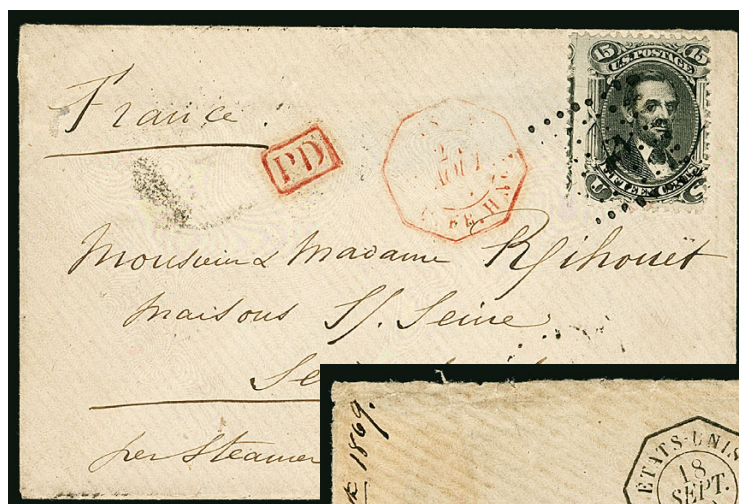 France.
PD
15 U.S. POSTAGE 15
FIFTEEN CENTS
U S
AOUT
Monsieur & Madame
Maisons S/. Seine
per Steamer
1869.
ETATS-UNIS
18
SEPT.